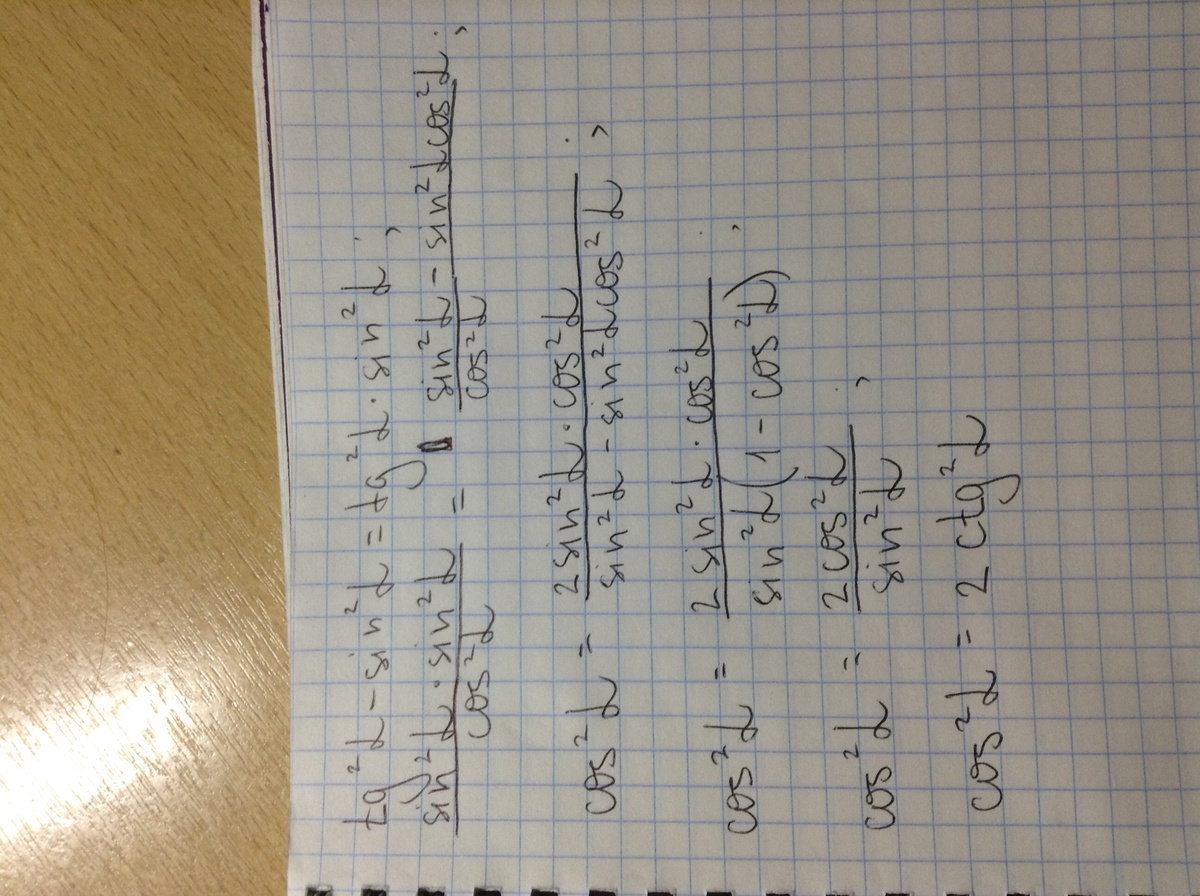 tg²α - sin²α = tg²α · sin²α;
sin²α · sin²α / cos²α = sin²α - sin²α cos²α / cos²α;
cos²α = 2sin²α · cos²α / sin²α - sin²α cos²α;
cos²α = 2sin²α · cos²α / sin²α(1 - cos²α);
cos²α = 2cos²α / sin²α;
cos²α = 2ctg²α